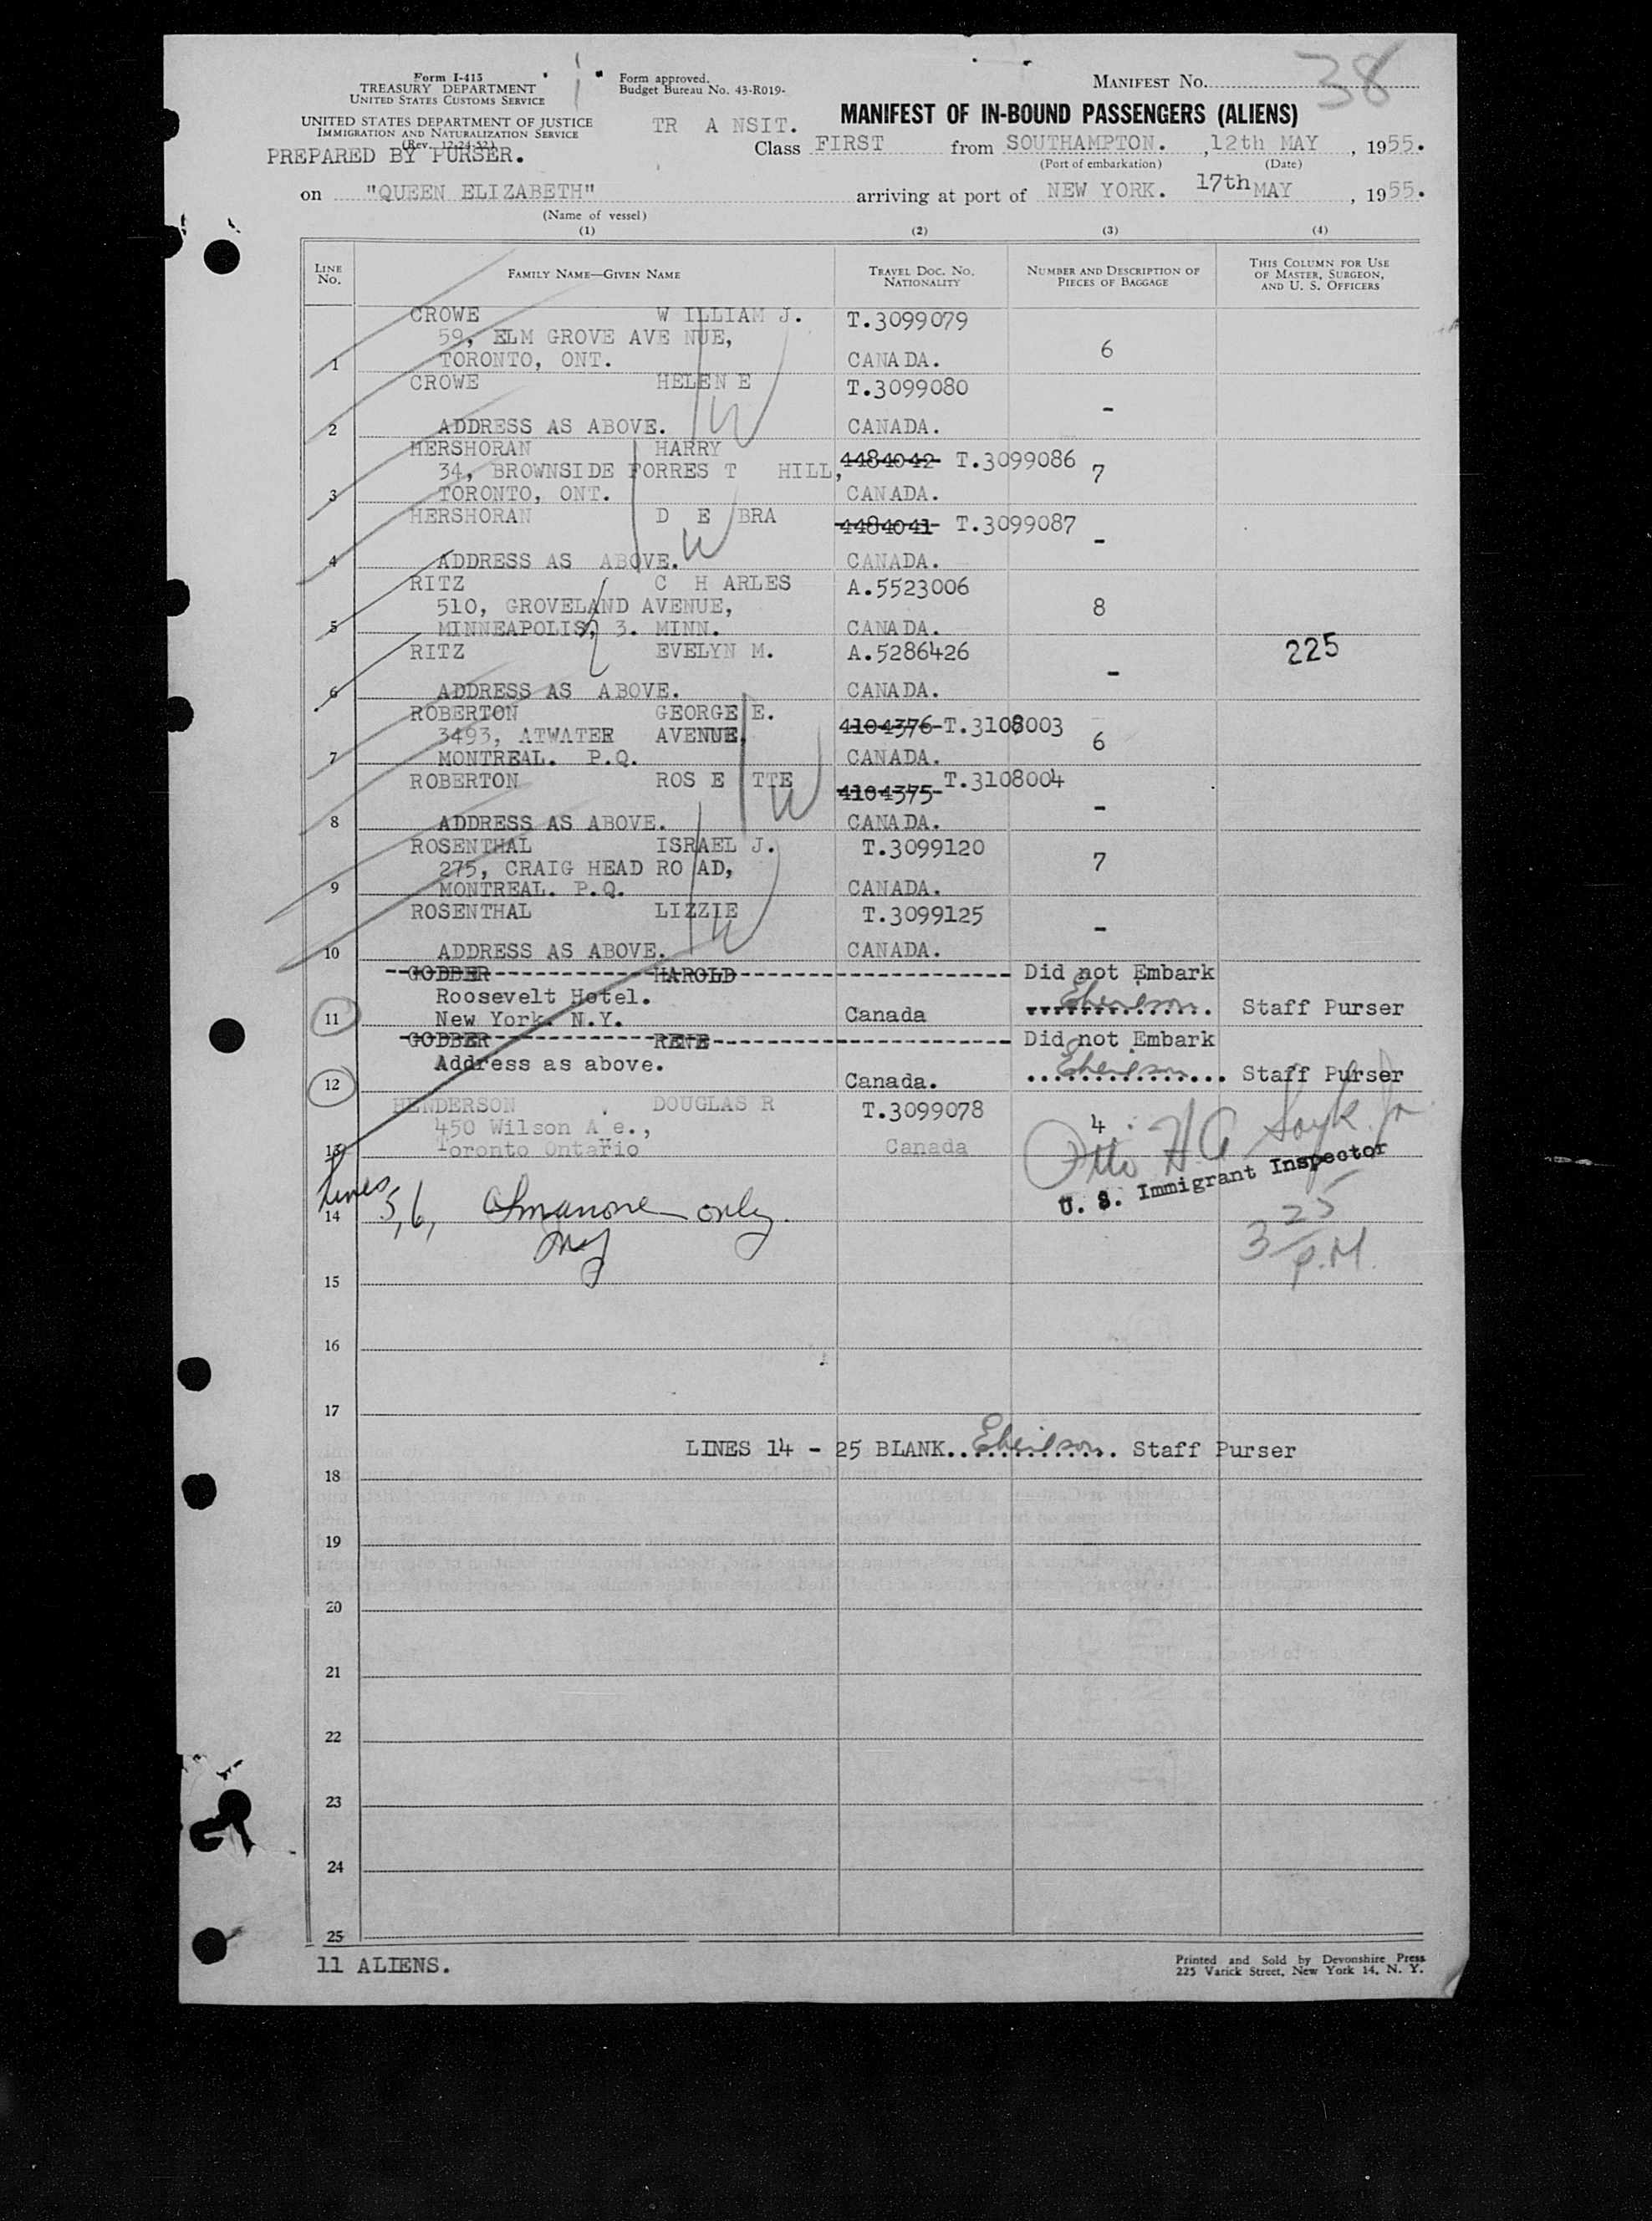 Form I-415
TREASURY DEPARTMENT
UNITED STATES CUSTOMS SERVICE
UNITED STATES DEPARTMENT OF JUSTICE
IMMIGRATION AND NATURALIZATION SERVICE
(Rev. 12-24-52)
PREPARED BY PURSER.
Form approved.
Budget Bureau No. 43-R019-
TR A NSIT.
MANIFEST No. 38
MANIFEST OF IN-BOUND PASSENGERS (ALIENS)
Class FIRST from SOUTHAMPTON. , 12th MAY , 1955.
(Port of embarkation) (Date)
on "QUEEN ELIZABETH" arriving at port of NEW YORK. 17th MAY , 1955.
(Name of vessel)
(1) (2) (3) (4)
LINE No. FAMILY NAME—GIVEN NAME TRAVEL DOC. NO. NATIONALITY NUMBER AND DESCRIPTION OF PIECES OF BAGGAGE THIS COLUMN FOR USE OF MASTER, SURGEON, AND U. S. OFFICERS
CROWE W ILLIAM J. T.3099079
59, ELM GROVE AVE NUE, 6
1 TORONTO, ONT. CANADA.
CROWE HELEN E T.3099080
-
2 ADDRESS AS ABOVE. CANADA.
W
HERSHORAN HARRY 4484042 T.3099086
34, BROWNSIDE FORRES T HILL, 7
3 TORONTO, ONT. CANADA.
HERSHORAN D E BRA 4484041 T.3099087
-
4 ADDRESS AS ABOVE. CANADA.
W
RITZ C H ARLES A.5523006
510, GROVELAND AVENUE, 8
5 MINNEAPOLIS, 3. MINN. CANADA.
RITZ EVELYN M. A.5286426 225
-
6 ADDRESS AS ABOVE. CANADA.
ROBERTON GEORGE E. 4104376-T.3108003
3493, ATWATER AVENUE, 6
7 MONTREAL. P.Q. CANADA.
ROBERTON ROS E TTE 4104375-T.3108004
-
8 ADDRESS AS ABOVE. CANADA.
W
ROSENTHAL ISRAEL J. T.3099120
275, CRAIG HEAD RO AD, 7
9 MONTREAL. P.Q. CANADA.
ROSENTHAL LIZZIE T.3099125
-
10 ADDRESS AS ABOVE. CANADA.
W
GODBER HAROLD Did not Embark
Roosevelt Hotel. Staff Purser
11 New York. N.Y. Canada
GODBER RENE Did not Embark
Address as above. Staff Purser
12 Canada.
HENDERSON . DOUGLAS R T.3099078
450 Wilson A e., 4
13 Toronto Ontario Canada
Otto H A
U. S. Immigrant Inspector
Lines
14 5, 6, only
3 25 P.M.
15
16
17
LINES 14 - 25 BLANK. Staff Purser
18
19
20
21
22
23
24
25
11 ALIENS.
Printed and Sold by Devonshire Press
225 Varick Street, New York 14, N. Y.